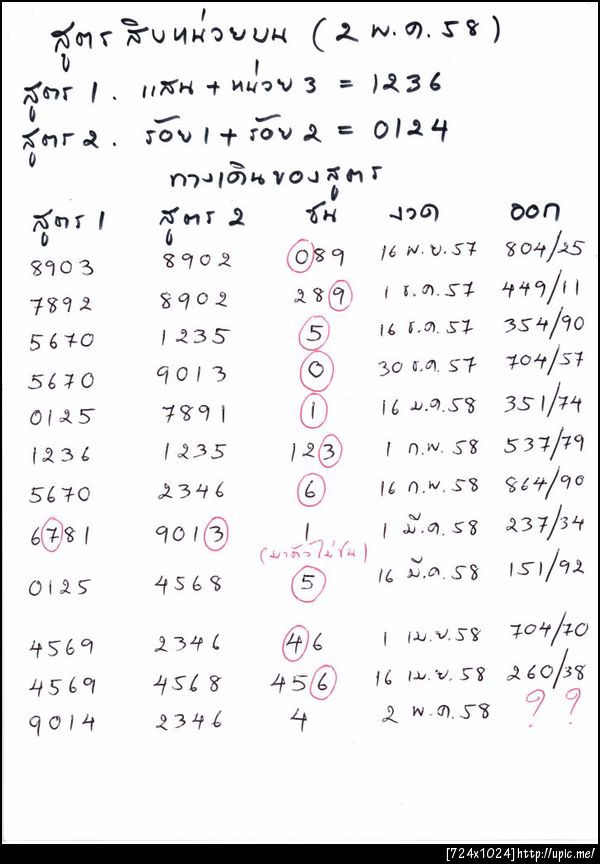 สูตร สิบหน่วยบน ( 2 พ.ค. 58 )
สูตร 1 . แสน + หน่วย 3 = 1236
สูตร 2 . ร้อย 1 + ร้อย 2 = 0124
ทางเดินของสูตร
สูตร 1 สูตร 2 ชน งวด ออก
8903 8902 089 16 พ.ย. 57 804/25
7892 8902 289 1 ธ.ค. 57 449/11
5670 1235 5 16 ธ.ค. 57 354/90
5670 9013 0 30 ธ.ค. 57 704/57
0125 7891 1 16 ม.ค. 58 351/74
1236 1235 123 1 ก.พ. 58 537/79
5670 2346 6 16 ก.พ. 58 864/90
6781 9013 1 1 มี.ค. 58 237/34
(มาตัวไม่ชน)
0125 4568 5 16 มี.ค. 58 151/92
4569 2346 46 1 เม.ย. 58 704/70
4569 4568 456 16 เม.ย. 58 260/38
9014 2346 4 2 พ.ค. 58 ? ?
[724x1024]http://upic.me/